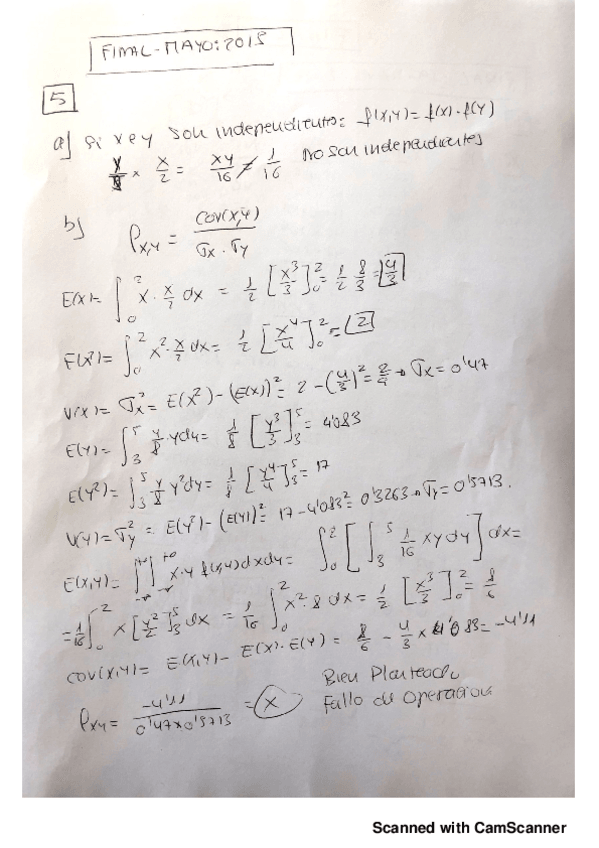 FINAL-MAYO:2015
5
a) Si x e y son independientes: f(x,y) = f(x) · f(y)
y/8 × x/2 = xy/16 ≠ 1/16 No son independientes
b) ρx,y = cov(x,y) / σx · σy
E(x)= ∫₀² x · x/2 dx = 1/2 [x³/3]₀² = 1/2 8/3 = 4/3
E(x²)= ∫₀² x² · x/2 dx = 1/2 [x⁴/4]₀² = 2
V(x)= σx² = E(x²) - (E(x))² = 2 - (4/3)² = 2/9 → σx = 0'47
E(y)= ∫₃⁵ y/8 · y dy = 1/8 [y³/3]₃⁵ = 4'083
E(y²)= ∫₃⁵ y/8 y² dy = 1/8 [y⁴/4]₃⁵ = 17
V(y)= σy² = E(y²) - (E(y))² = 17 - 4'083² = 0'3263 → σy = 0'5713.
E(x,y)= ∫∫ x·y f(x,y) dx dy = ∫₀² [∫₃⁵ 1/16 xy dy] dx =
= 1/16 ∫₀² x [y²/2]₃⁵ dx = 1/16 ∫₀² x² · 8 dx = 1/2 [x³/3]₀² = 8/6
cov(x,y) = E(x,y) - E(x) · E(y) = 8/6 - 4/3 × 4'083 = -4'11
ρxy = -4'11 / 0'47×0'5713 = x
Bien Planteado
Fallo de Operacion
Scanned with CamScanner